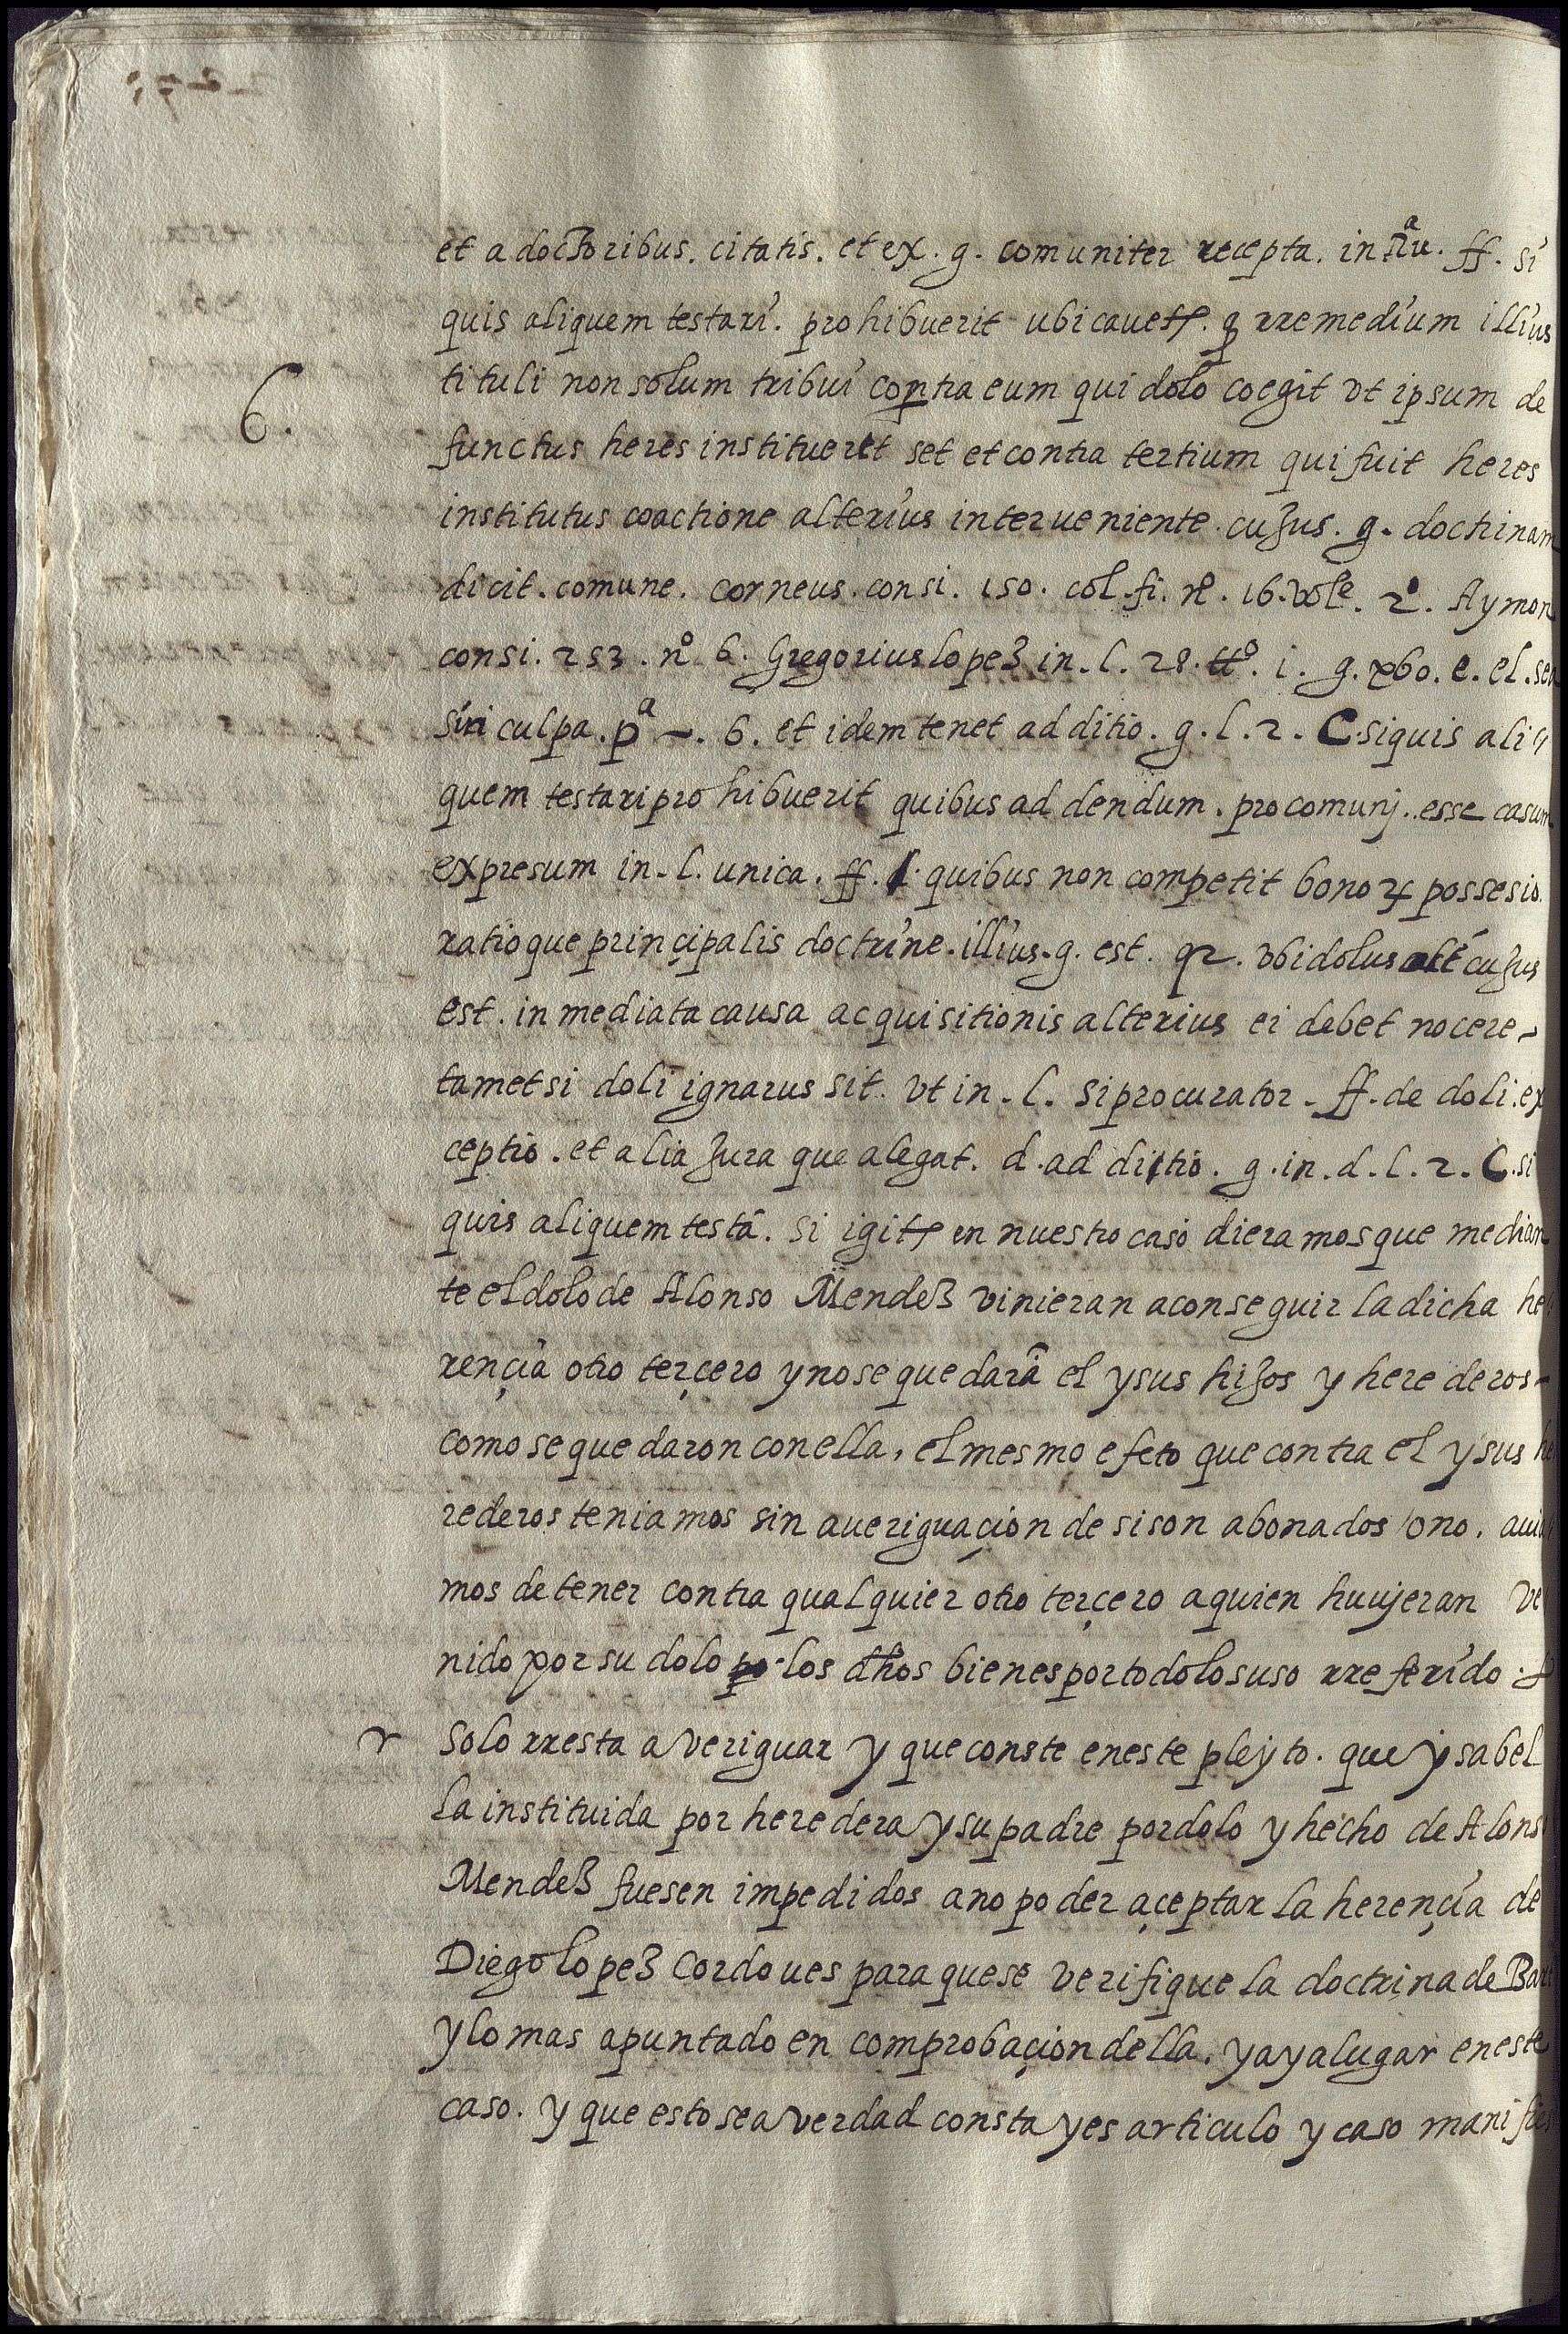 et a doctoribus. citatis. et ex. g. comuniter recepta. in ff. si
quis aliquem testari. prohibuerit ubi cauetr. q rremedium illius
tituli non solum tribui contra eum qui dolo coegit vt ipsum de
6.
functus heres institueret set et contra tertium qui fuit heres
institutus coactione alterius interueniente cujus. g. doctrinam
dicit. comune. corneus. consi. 150. col. fi. nº. 16. vole. 2º. Aymon
consi. 253. nº 6. Gregorius lopez in. l. 28. ttº. i. g. e. el. sea
sin culpa. pª 6. et idem tenet additio. g. l. 2. C. si quis ali
quem testari prohibuerit quibus addendum. pro comunj. esse casum
expresum in. l. unica. ff. quibus non competit bonoꝝ possesio.
ratioque prinçipalis doctrine. illius. g. est. qr. vbi dolus cujus
est. in mediata causa acquisitionis alterius ei debet nocere
tametsi doli ignarus sit. vt in. l. si procurator. ff. de doli. ex
ceptio. et alia jura que alegat. d. additio. g. in. d. l. 2. C. si
quis aliquem testā. si igitr en nuestro caso dieramos que median
te el dolo de Alonso Mendez vinieran a conseguir la dicha he
rençia otro terçero y no se quedarā el y sus hijos y herederos
como se quedaron con ella, el mesmo efeto que contra el y sus he
rederos teniamos sin aueriguaçion de si son abonados o no. auia
mos de tener contra qualquier otro terçero a quien huujeran ve
nido por su dolo los dhos bienes por todo lo suso rreferido.
solo rresta averiguar y que conste en este pleyto. que ysabel
la instituida por heredera y su padre por dolo y hecho de Alons
Mendez fuesen impedidos a no poder açeptar la herençia de
Diego lopez Cordoues para que se verifique la doctrina de Bar
y lo mas apuntado en comprobaçion della. y aya lugar en este
caso. y que esto sea verdad consta y es articulo y caso manifies